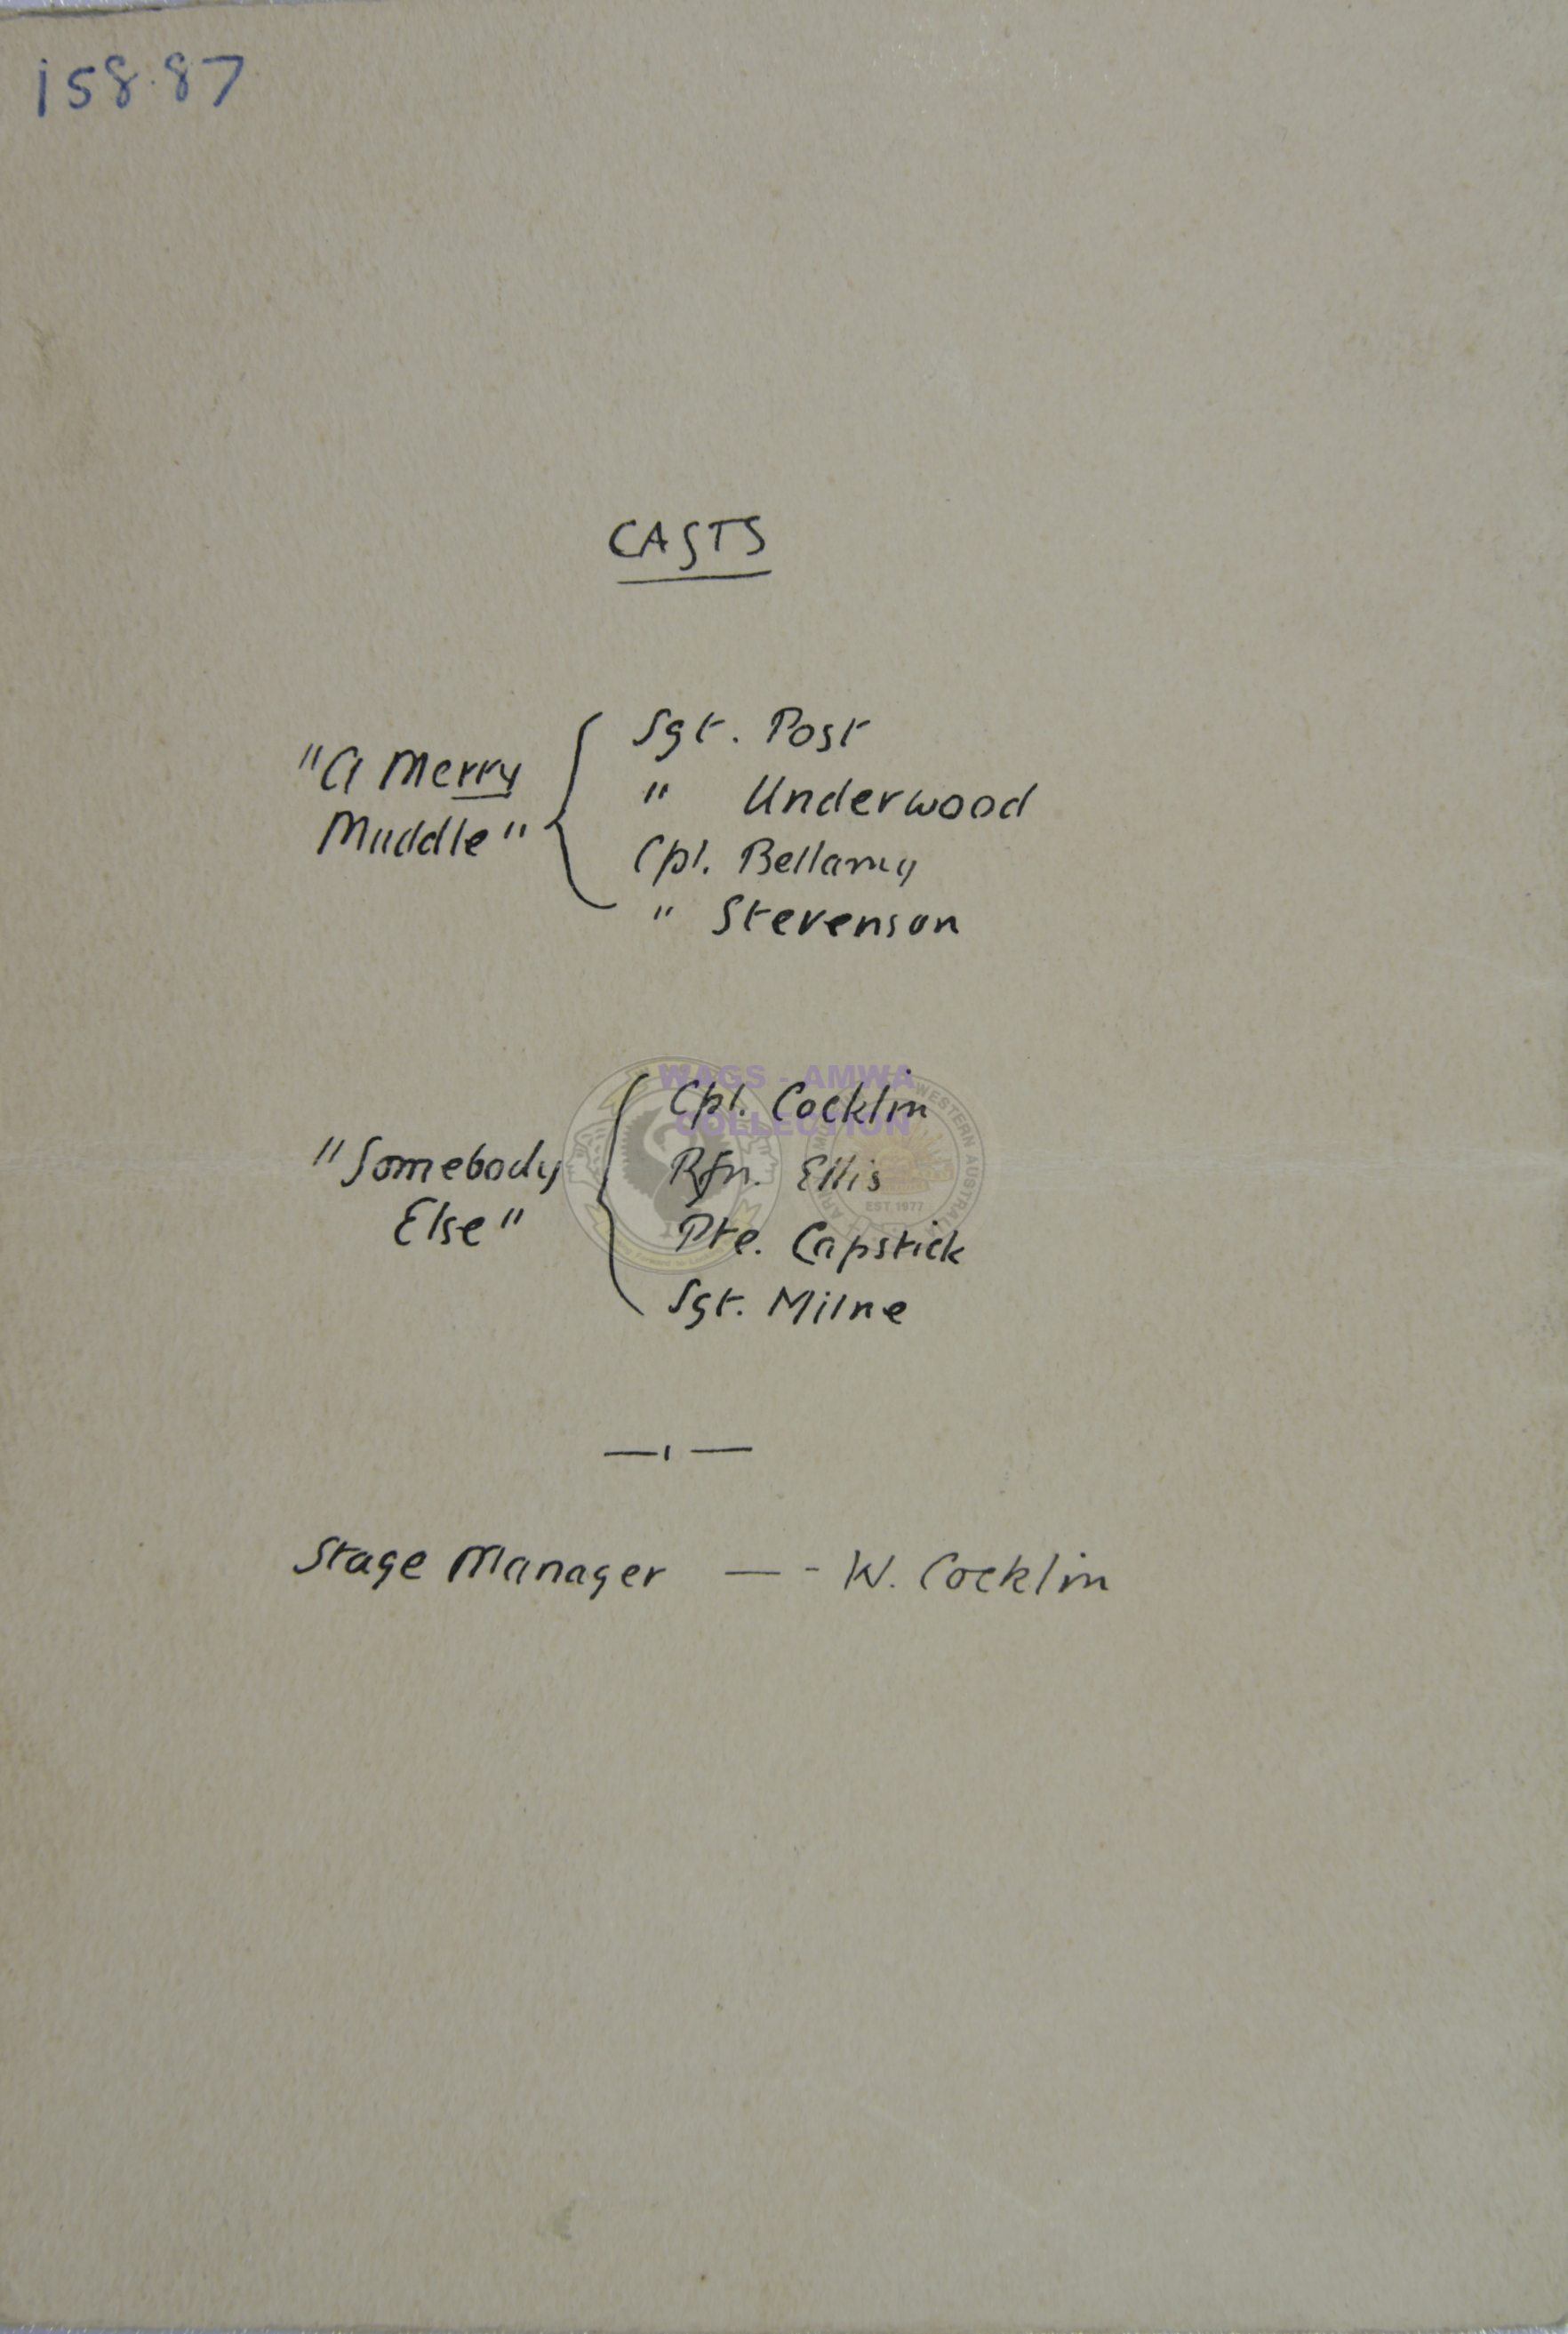 158.87
CASTS
"A Merry
Muddle"
Sgt. Post
" Underwood
Cpl. Bellamy
" Stevenson
WAGS - AMWA
COLLECTION
"Somebody
Else"
Cpl. Cocklin
Rfn. Ellis
Pte. Capstick
Sgt. Milne
EST. 1977
WESTERN AUSTRALIA
Stage Manager — - W. Cocklin